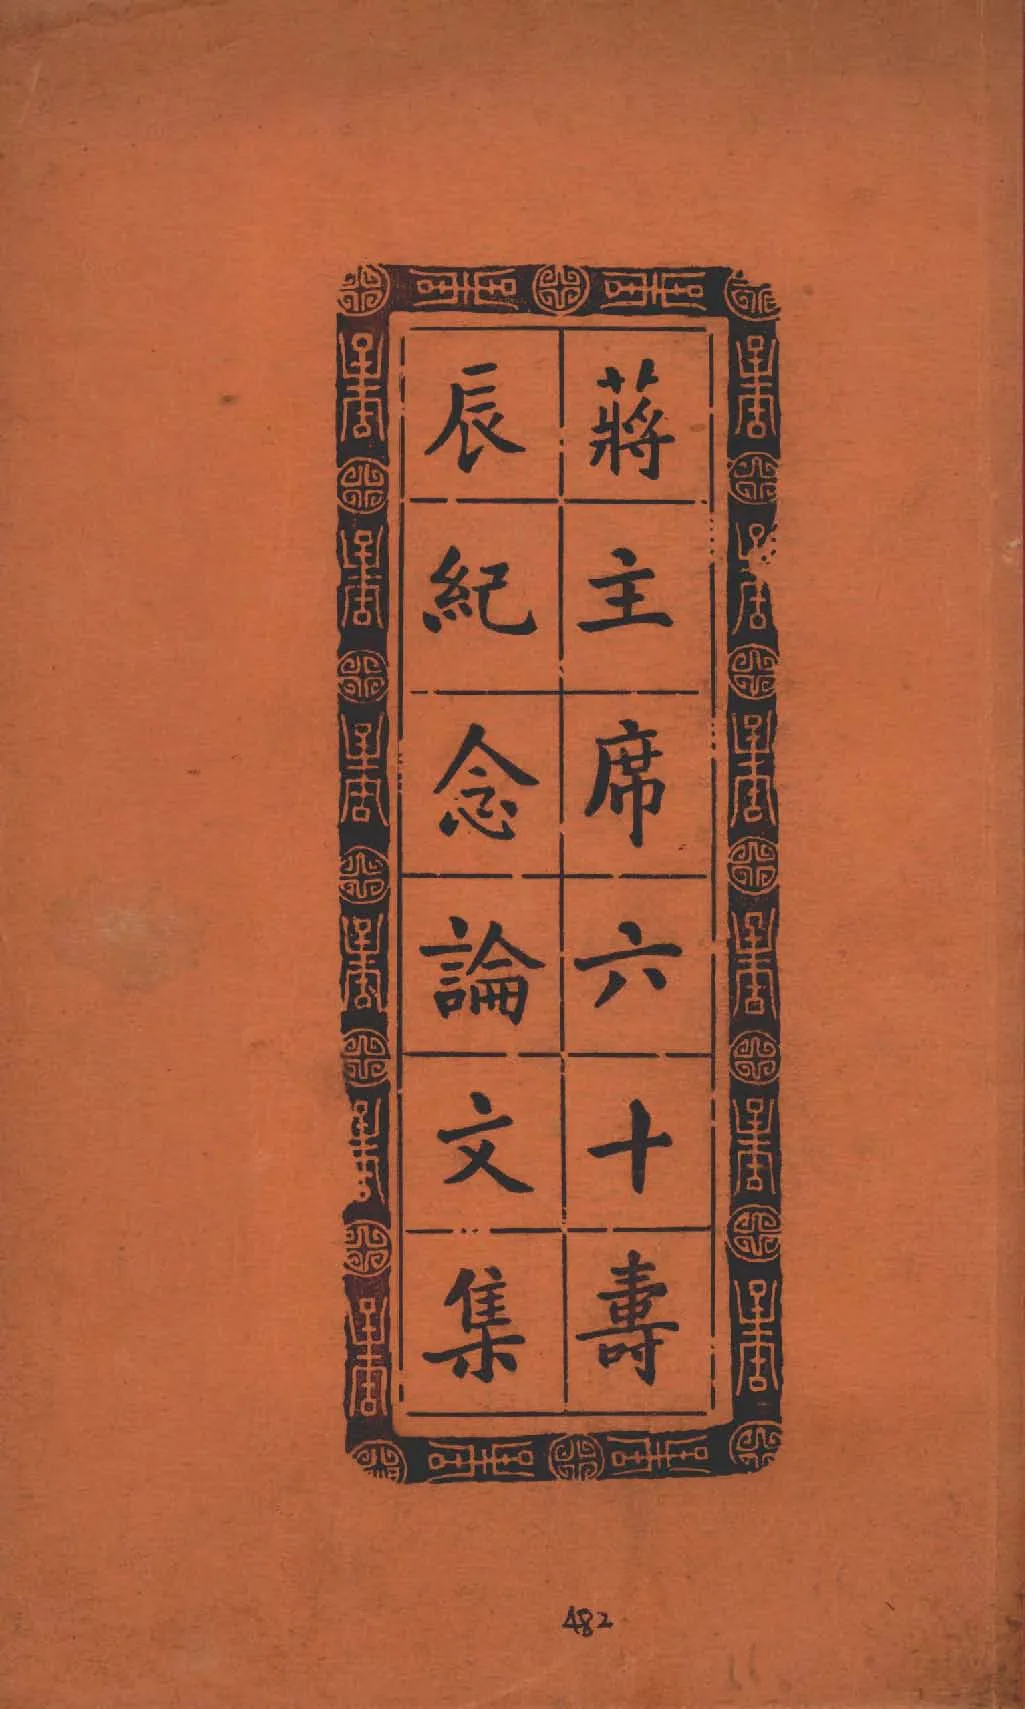 蔣主席六十壽
辰紀念論文集
482